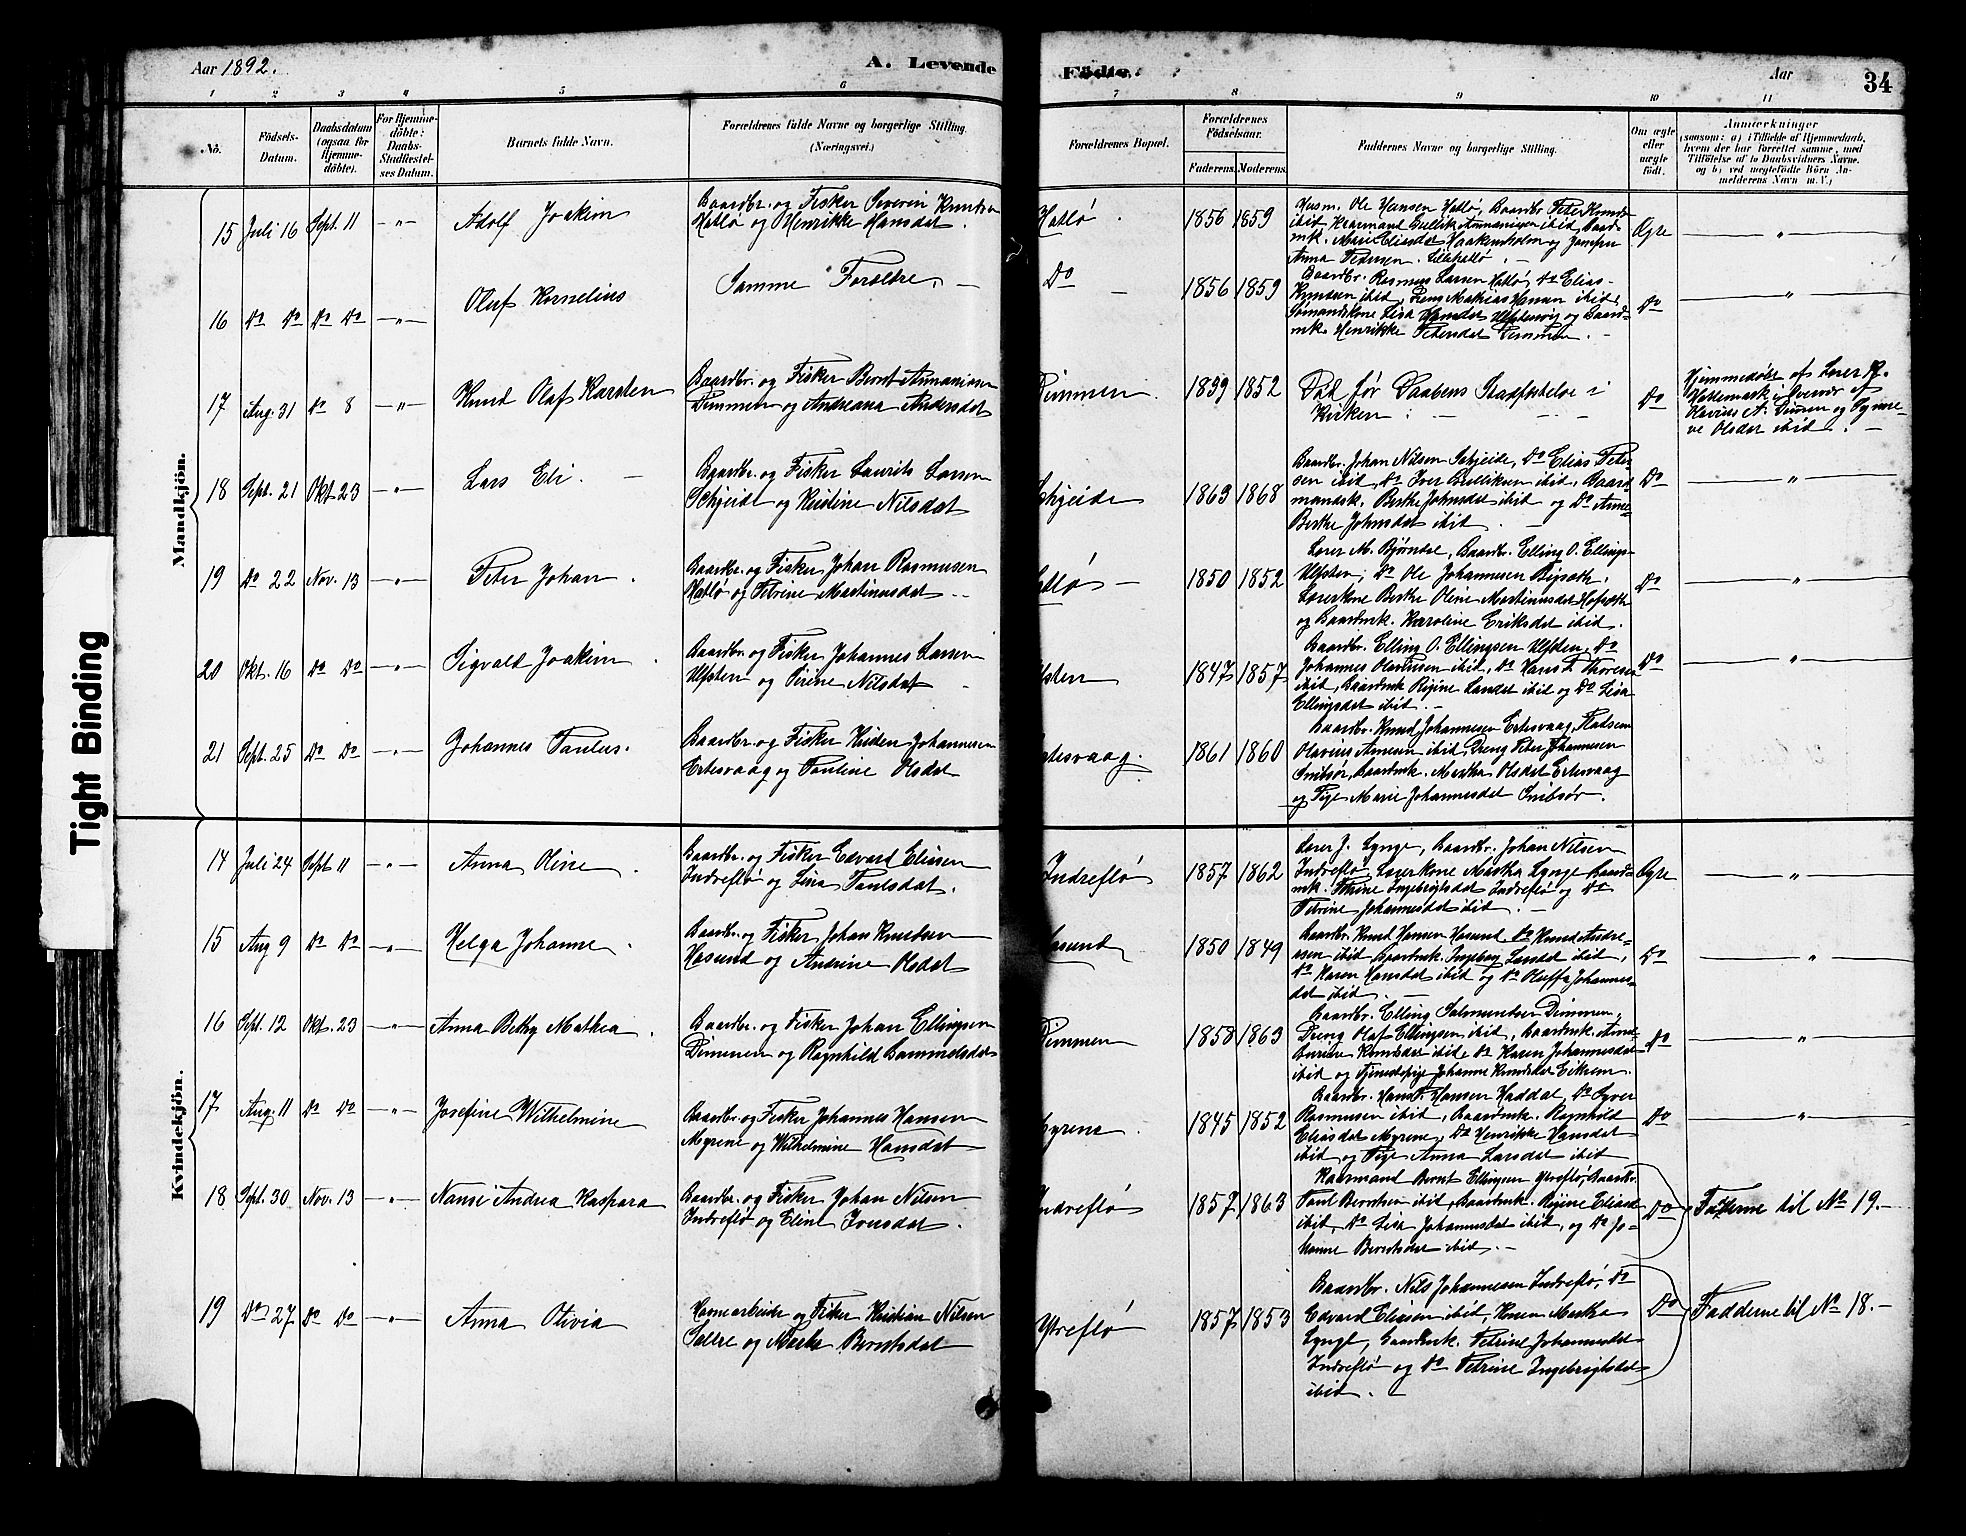 Aar 1892.
A. Levende
Fødte.
Aar
34
1 2 3 4 5 6 7 8 9 10 11
No.
Fødsels-
Datum.
Daabsdatum
(ogsaa for
Hjemme-
døbte).
For Hjemme-
døbte:
Daabs-
Stadfæstel-
ses Datum.
Barnets fulde Navn.
Forældrenes fulde Navne og borgerlige Stilling.
(Næringsvei.)
Forældrenes Bopæl.
Forældrenes
Fødselsaar.
Faderens. Moderens.
Faddernes Navne og borgerlige Stilling.
Om ægte
eller
uægte
født.
Anmærkninger
(saasom: a) i Tilfælde af Hjemmedaab,
hvem der har forrettet samme, med
Tilføielse af to Daabsvidners Navne,
og b) ved uegtefødte Børn An-
melderens Navn m. V.)
Mandkjøn.
15 Juli 16 Sept. 11 -"- Adolf Joakim
Gaardbr. og Fisker Severin Knutsen
Hatlø og Henrikke Hansdat.
Hatlø. 1856 1859
Husm. Ole Hansen Hatlø, Gaardbr. Peter Knuds-
ibid, Kaarmand Gullik Ananiasen ibid, Gaard-
mk. Marie Eliasdat Haakonsholm og Jomfru
Anna Pedersen. Lillehatlø. -
Ægte
"
16 Do Do Do Do -"- Oluf Kornelius
Samme Forældre. -
Do - 1856 1859
Gaardbr. Rasmus Larsen Hatlø, Do Elias
Knudsen ibid, Dreng Mathias Hansen ibid,
Sømandskone Lisa Hansdat Ulfstenvig og Gaard-
mk. Henrikke Petersdat Dimmen. -
Do
"
17 Aug. 31 Do 8 -"- Knud Olaf Karsten
Gaardbr. og Fisker Bernt Ananiasen
Dimmen og Andreana Andersdat
Dimmen. 1859 1852
Død før Daabens Stadfæstelse i
Kirken
Do
Hjemmedøbt af Lærer P.
Hattemark i Overvær af
Olavius A. Dimmen og Synne-
ve Olsdat ibid. -
18 Sept. 21 Okt 23 -"- Lars Eli. -
Gaardbr. og Fisker Laurits Larsen
Schjeide og Kristine Nilsdat
Schjeide 1863 1868
Gaardbr. Johan Nilsen Schjeide, Do Elias Peter-
sen ibid, Do Iver Gulliksen ibid, Gaard-
mandsk. Berthe Johnsdat ibid og Do Anne
Berthe Johnsdat ibid. -
Do
"
19 Do 22 Nov. 13 -"- Peter Johan.
Gaardbr. og Fisker Johan Rasmussen
Hatlø og Petrine Martinusdat. -
Hatlø - 1850 1852
Lærer M. Bjørndal, Gaardbr. Elling O. Ellings-
Ulfsten, Do Ole Johannesen Bigsæth.
Lærerkone Berthe Oline Martinusdat Hofsæth
og Gaardmk. Karoline Eriksdat ibid.
Do
"
20 Okt. 16 Do Do -"- Sigvald Joakim.
Gaardbr. og Fisker Johannes Larsen
Ulfsten og Sirine Nilsdat.
Ulfsten 1847 1857
Gaardbr. Elling O. Ellingsen Ulfsten, Do
Johannes Olartussen ibid, Do Hans T. Thoresen
ibid, Gaardmk Regine Larsdat ibid og Do Lisa
Ellingsdat ibid. -
Do
"
21 Sept. 25 Do Do -"- Johannes Paulus.
Gaardbr. og Fisker Kristen Johannesen
Ertesvaag og Pauline Olsdat
Ertesvaag. 1861 1860
Gaardbr. Knud Johannesen Ertesvaag, Pladsem
Olavius Arnesen ibid, Dreng Peter Johannesen
Snibsør, Gaardmk. Martha Olsdat Ertesvaag
og Pige Marie Johannesdat Snibsør.
Kvindekjøn.
14 Juli 24 Sept 11 -"- Anna Oline.
Gaardbr. og Fisker Edvard Eliasen
Indreflø og Lina Paulsdat.
Indreflø 1857 1862
Lærer J. Lynge, Gaardbr. Johan Nilsen
Indreflø, Lærerkone Martha Lynge Gaard-
mk. Petrine Ingebrigtsdat Indreflø og Do
Petrine Johannesdat ibid. -
Ægte
"
15 Aug 9 Do Do -"- Helga Johanne.
Gaardbr. og Fisker Johan Knudsen
Hasund og Andrine Olsdat
Hasund 1850 1849
Gaardbr. Knud Hansen Hasund, Do Knud Andre-
asen ibid Gaardmk. Ingeborg Larsdat ibid,
Do Karen Hansdat ibid og Do Oluffa Johannes-
dat ibid. -
Do
"
16 Sept. 12 Okt. 23 -"- Anna Bethy Mathea.
Gaardbr. og Fisker Johan Ellingsen
Dimmen og Ragnhild Gammelsdat
Dimmen 1858 1863
Gaardbr. Elling Salmundsen Dimmen,
Dreng Olaf Ellingsen ibid, Gaardmk. Ane
Knudsdat ibid, Do Karen Johannesdat
ibid og Tjenestepige Johanne Knudsdat Eiksem.
Do
"
17 Aug. 11 Do Do -"- Josefine Wilhelmine
Gaardbr. og Fisker Johannes Hansen
Myrene og Wilhelmine Hansdat
Myrene. 1845 1852
Gaardbr. Hans Hansen Haddal, Do Syver
Rasmusen ibid, Gaardmk. Ragnhild
Eliasdat Myrene, Do Henrikke Hansdat
ibid og Pige Anna Larsdat ibid
Do
"
18 Sept. 30 Nov. 13 -"- Nansi Andrea Kaspara
Gaardbr. og Fisker Johan Nilsen
Indreflø og Eline Jonsdat.
Indreflø 1857 1863
Kaarmand Bernt Ellingsen Ytreflø, Gaardbr.
Paul Berntsen ibid, Gaardmk. Regine Eliasd.
ibid, Do Lisa Johannesdat ibid, og Do Jo-
hanne Berntsdat ibid. -
Do
Fadderne til No 19. -
19 Do 27 Do Do -"- Anna Olivia
Havnearbeider og Fisker Kristian Nilsen
Sætre og Marta Berntsdat
Ytreflø 1857 1853
Gaardbr. Nils Johannesen Indreflø, Do
Edvard Eliasen ibid, Konen Martha
Lynge, Gaardmk. Petrine Johannesdat
Indreflø og Do Petrine Ingebrigtsdat
ibid. -
Do
Fadderne til No 18. -
Tight Binding